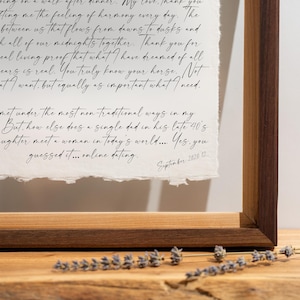 ing on a walk after dinner. My love, thank you
ting me the feeling of harmony every day. The
between us that flows from dawns to dusks and
h all of our midnights together. Thank you for
al living proof that what I have dreamed of all
ears is real. You truly know your horse. Not
t I want, but equally as important what I need.
met under the most non-traditional ways in my
But how else does a single dad in his late 40's
ughter meet a woman in today's world... Yes, you
guessed it... online dating.
September